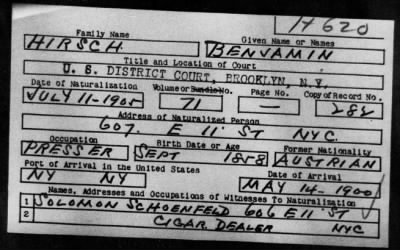 17620
Family Name Given Name or Names
HIRSCH BENJAMIN
Title and Location of Court
U. S. DISTRICT COURT, BROOKLYN, N.Y.
Date of Naturalization Volume or Bundle No. Page No. Copy of Record No.
JULY 11-1905 71 — 282
Address of Naturalized Person
607 E 11" ST NYC.
Occupation Birth Date or Age Former Nationality
PRESSER SEPT 1858 AUSTRIAN
Port of Arrival in the United States Date of Arrival
NY NY MAY 14-1900
Names, Addresses and Occupations of Witnesses To Naturalization
1 SOLOMON SCHOENFELD 606 E 11" ST
2 CIGAR DEALER NYC